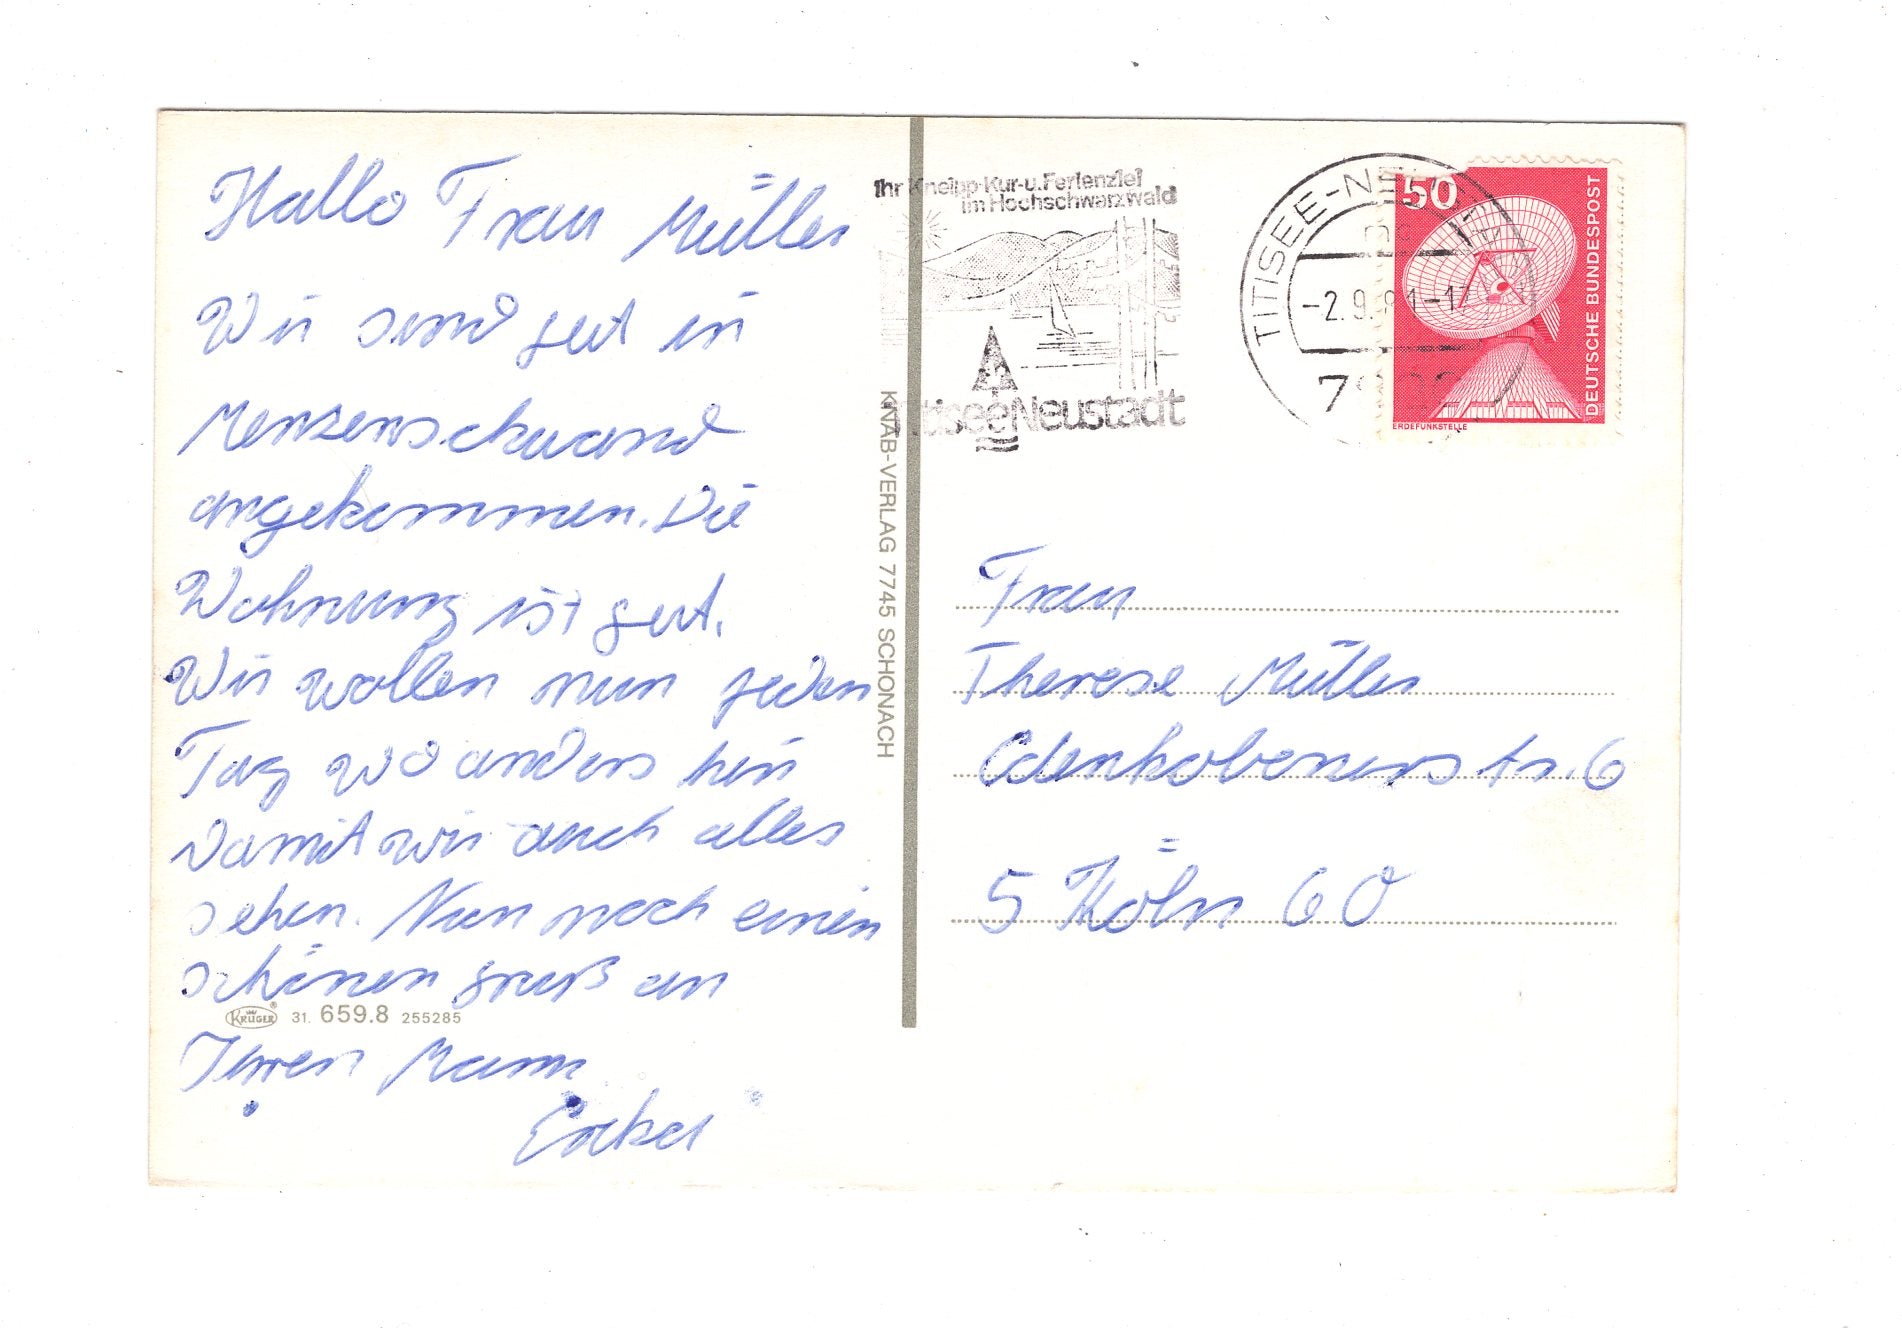 Hallo Frau Müller
Wir sind gut in
Menzenschwand
angekommen. Die
Wohnung ist gut.
Wir wollen nun jeden
Tag wo anders hin
Damit wir auch alles
sehen. Nun noch einen
schönen gruß an
Ihren Mann
KRÜGER® 31. 659.8 255285
KNAB-VERLAG 7745 SCHONACH
Ihr Kneipp-Kur-u.Ferienziel
im Hochschwarzwald
Titisee Neustadt
TITISEE-NEUST
-2.9.81-17
50
DEUTSCHE BUNDESPOST
ERDEFUNKSTELLE
Frau
Therese Müller
Edenkobenerstr. 6
5 Köln 60